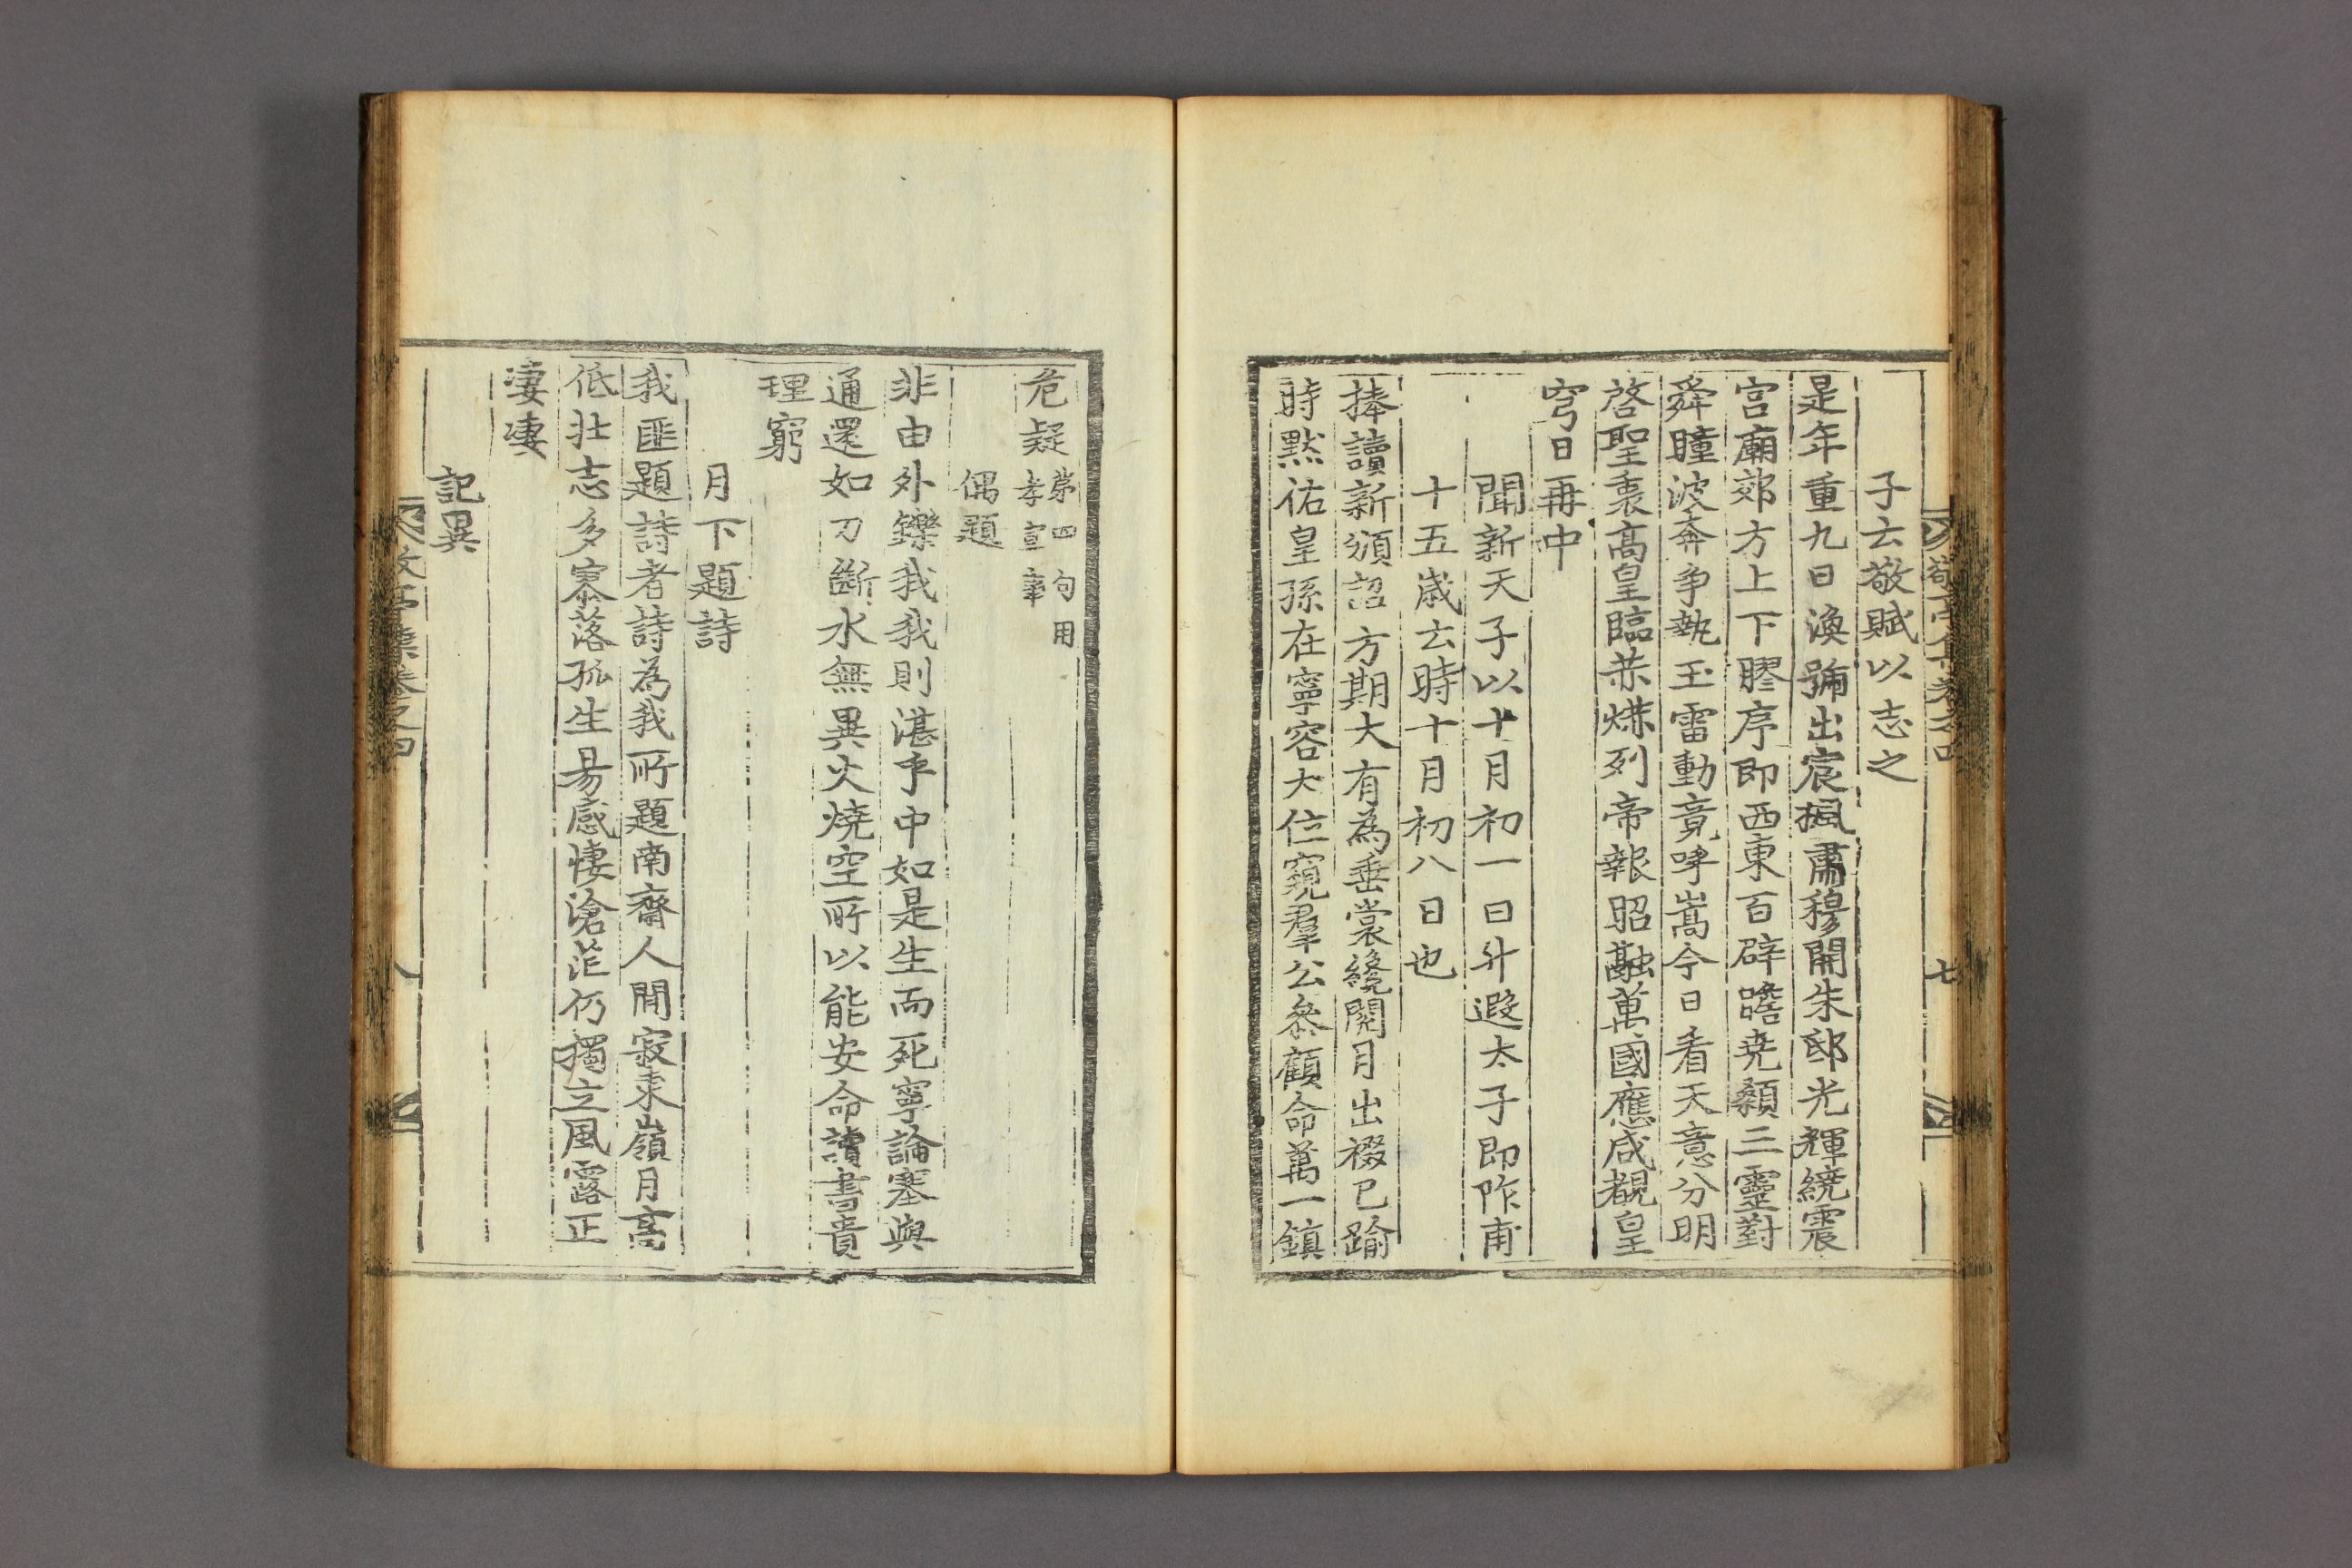 子云敬賦以志之
是年重九日渙號出宸楓肅穆開朱邸光輝繞震
宮廟郊方上下膠序即西東百辟瞻堯顙三靈對
舜瞳波奔爭執玉雷動竟呼嵩今日看天意分明
啓聖衷高皇臨恭煠列帝報昭融萬國應咸覩皇
穹日再中
聞新天子以十月初一日升遐太子即阼甫
十五歲云時十月初八日也
捧讀新頒詔方期大有為垂裳纔閱月出裰已踰
時默佑皇孫在寧容大位窺羣公叅顧命萬一鎮
危疑第四句用
孝宣事
偶題
非由外鑠我我則湛乎中如是生而死寧論塞與
通還如刀斷水無異火燒空所以能安命讀書貴
理窮
月下題詩
我匪題詩者詩為我所題南齋人閒寂東嶺月高
低壯志多寥落孤生易感悽滄茫仍獨立風露正
凄凄
記異
敬亭集卷之四
七
八